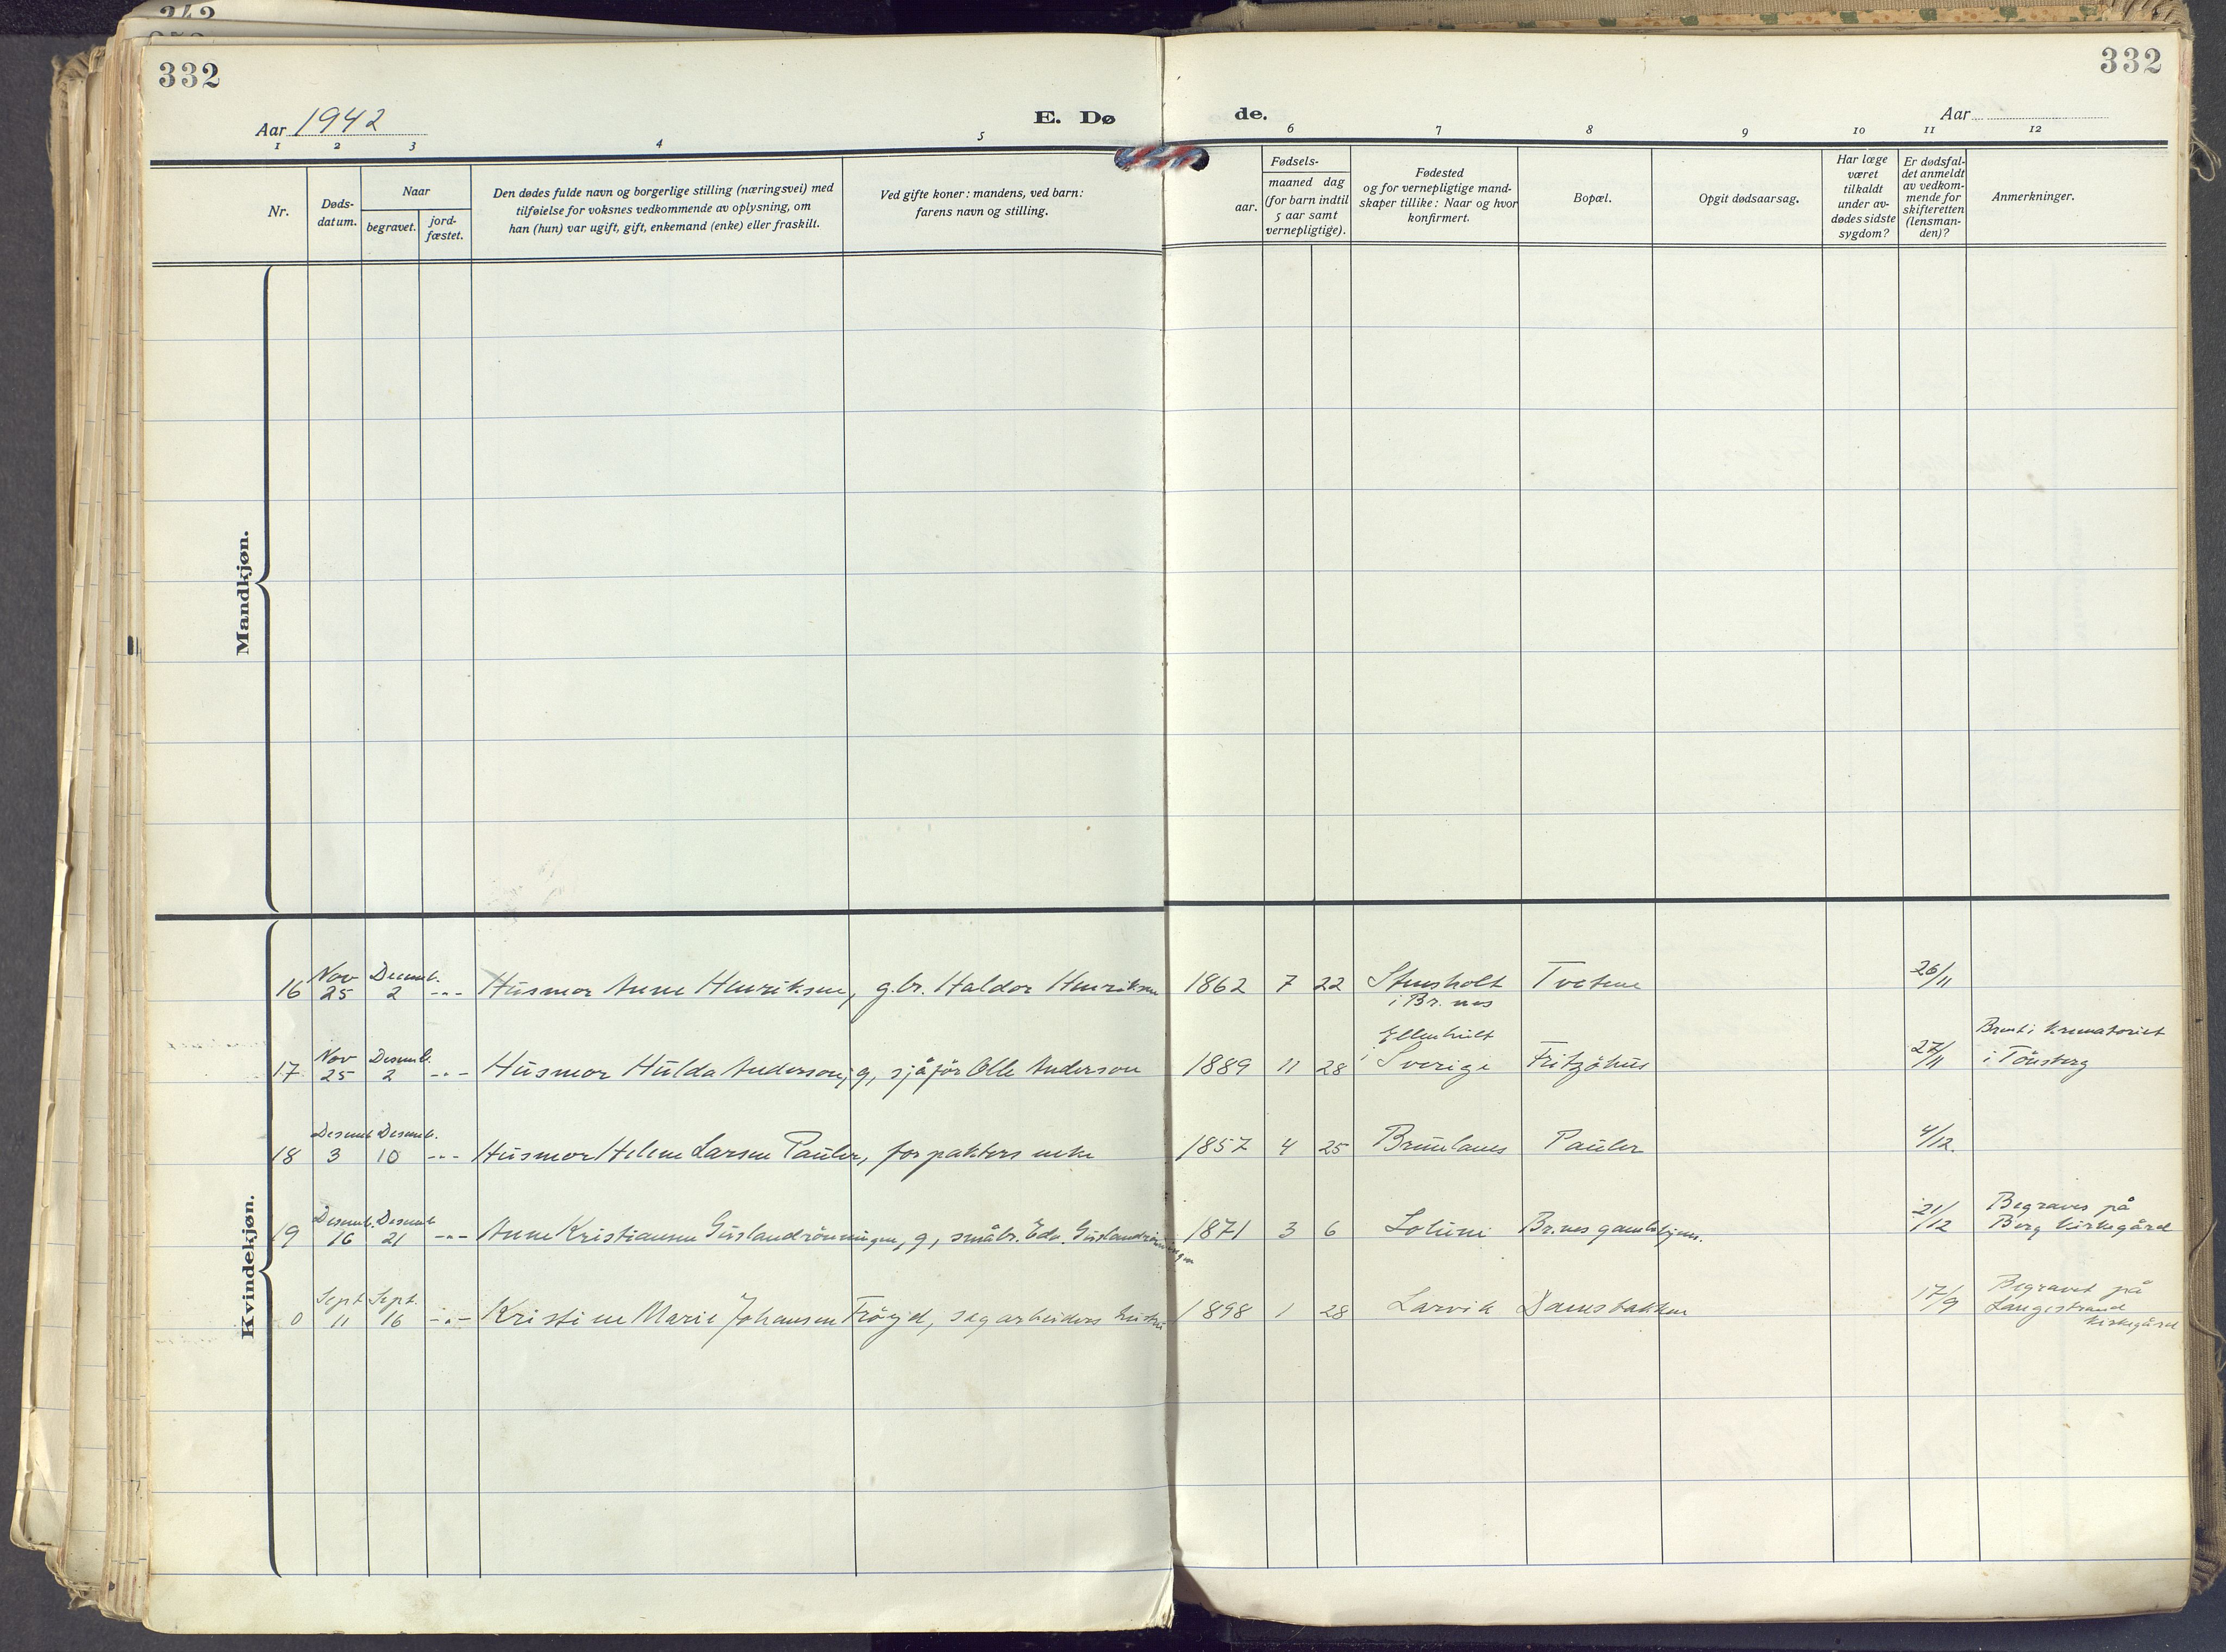 342
332
332
Aar 1942
E. Dø
de.
Aar
1 2 3 4 5 6 7 8 9 10 11 12
Nr.
Døds-
datum.
Naar
begravet.
jord-
fæstet.
Den dødes fulde navn og borgerlige stilling (næringsvei) med
tilføielse for voksnes vedkommende av oplysning, om
han (hun) var ugift, gift, enkemand (enke) eller fraskilt.
Ved gifte koner: mandens, ved barn:
farens navn og stilling.
aar.
Fødsels-
maaned dag
(for barn indtil
5 aar samt
vernepligtige).
Fødested
og for vernepligtige mand-
skaper tillike: Naar og hvor
konfirmert.
Bopæl.
Opgit dødsaarsag.
Har læge
været
tilkaldt
under av-
dødes sidste
sygdom?
Er dødsfal-
det anmeldt
av vedkom-
mende for
skifteretten
(lensman-
den)?
Anmerkninger.
Mandkjøn.
Kvindekjøn.
Nov Desemb. 26/11
16 25 2 -"- Husmor Anne Henriksen, g.br. Haldor Henriksen 1862 7 22 Stensholt Tvetene
i Br. nes
Ellenhult Brent i krematoriet
Nov Desemb. 27/11
17 25 2 -"- Husmor Hulda Anderson, g, sjåför Olle Anderson 1889 11 28 i Sverige Fritzöhus i Tönsberg
Desemb. Desemb. 4/12.
18 3 10 -"- Husmor Helene Larsen Pauler, forpakters enke 1857 4 25 Brunlanes Pauler
Desemb. Desemb. 21/12 Begraves på
19 16 21 -"- Anne Kristiansen Guslandrönningen, g, småbr. Edv. Guslandrönningen 1871 3 6 Br.nes gamlehjem. Berg kirkegård
Sept Sept. 17/9 Begravet på
0 11 16 -"- Kristine Marie Johansen Fröyd, sagarbeiders hustru 1898 1 28 Larvik Damsbakken Langestrand
kirkegård